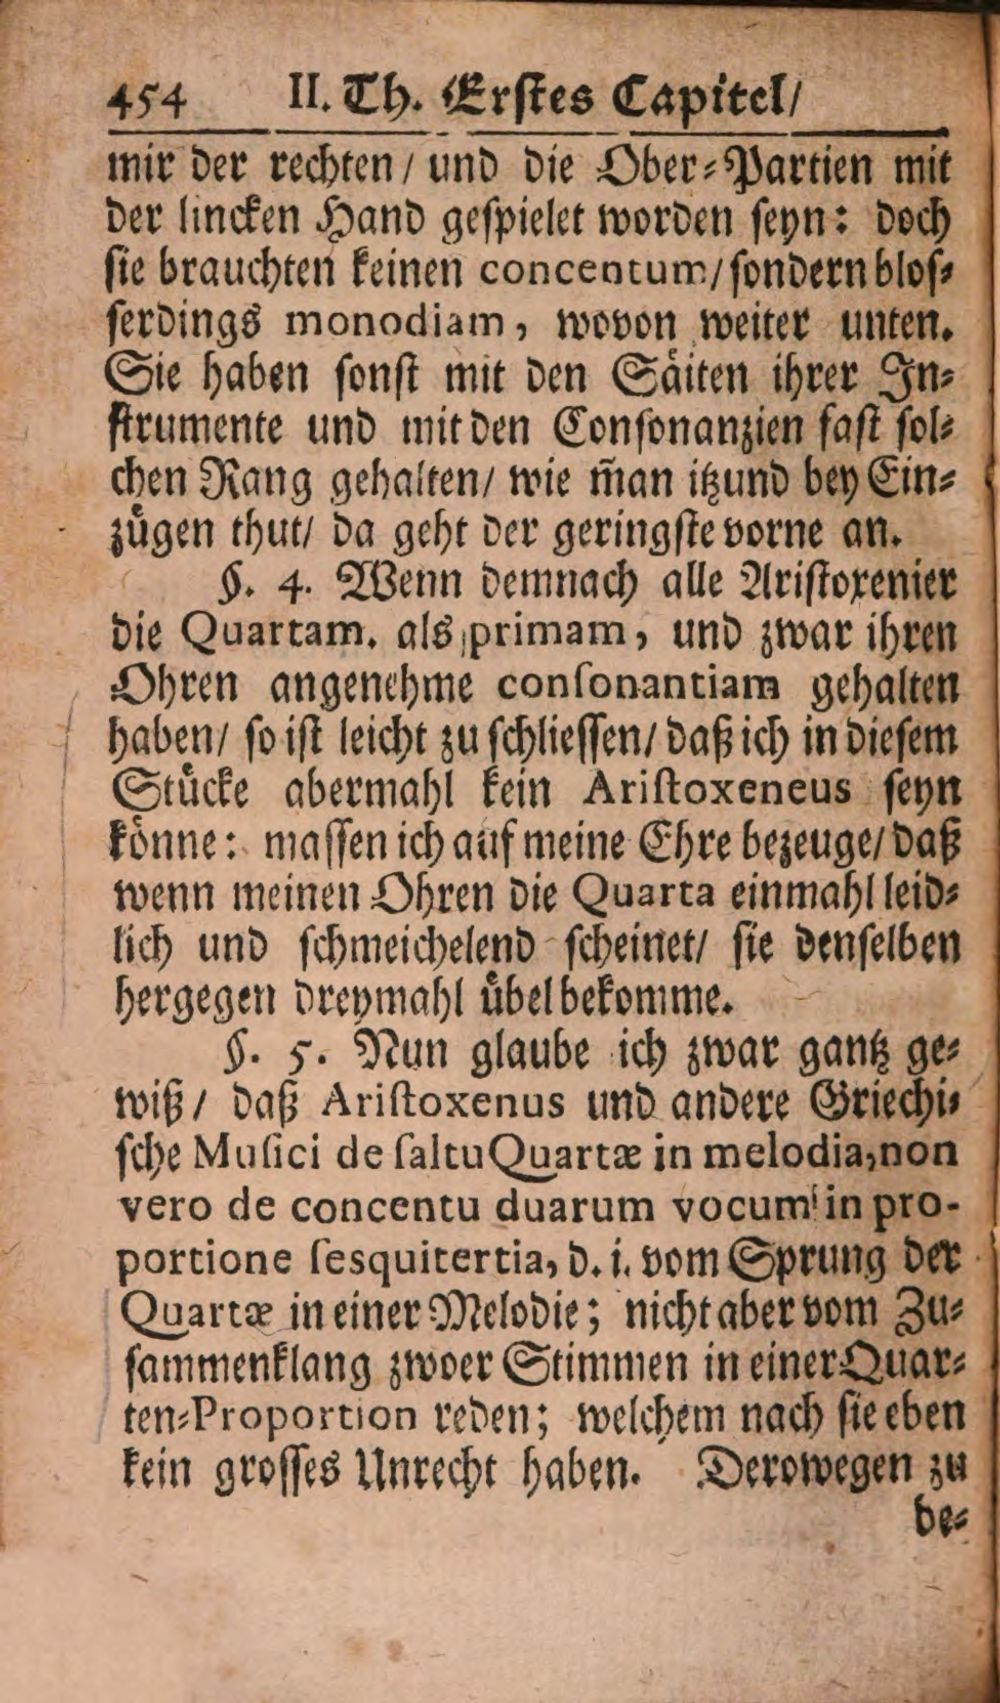 454 II. Th. Erſtes Capitel/
mir der rechten / und die Ober⸗Partien mit
der lincken Hand geſpielet worden ſeyn: doch
ſie brauchten keinen concentum/ ſondern bloſ⸗
ſerdings monodiam, wovon weiter unten.
Sie haben ſonſt mit den Säiten ihrer In⸗
ſtrumente und mit den Conſonanzien faſt ſol⸗
chen Rang gehalten/ wie m̃an itzund bey Ein⸗
zügen thut/ da geht der geringſte vorne an.
§. 4. Wenn demnach alle Ariſtoxenier
die Quartam. als primam, und zwar ihren
Ohren angenehme conſonantiam gehalten
haben/ ſo iſt leicht zu ſchlieſſen/ daß ich in dieſem
Stücke abermahl kein Ariſtoxeneus ſeyn
könne: maſſen ich auf meine Ehre bezeuge/ daß
wenn meinen Ohren die Quarta einmahl leid⸗
lich und ſchmeichelend ſcheinet/ ſie denſelben
hergegen dreymahl übel bekomme.
§. 5. Nun glaube ich zwar gantz ge⸗
wiß / daß Ariſtoxenus und andere Griechi⸗
ſche Muſici de ſaltu Quartæ in melodia, non
vero de concentu duarum vocum in pro-
portione ſesquitertia, d. i. vom Sprung der
Quartæ in einer Melodie; nicht aber vom Zu⸗
ſammenklang zwoer Stimmen in einer Quar⸗
ten⸗Proportion reden; welchem nach ſie eben
kein groſſes Unrecht haben. Derowegen zu
be⸗